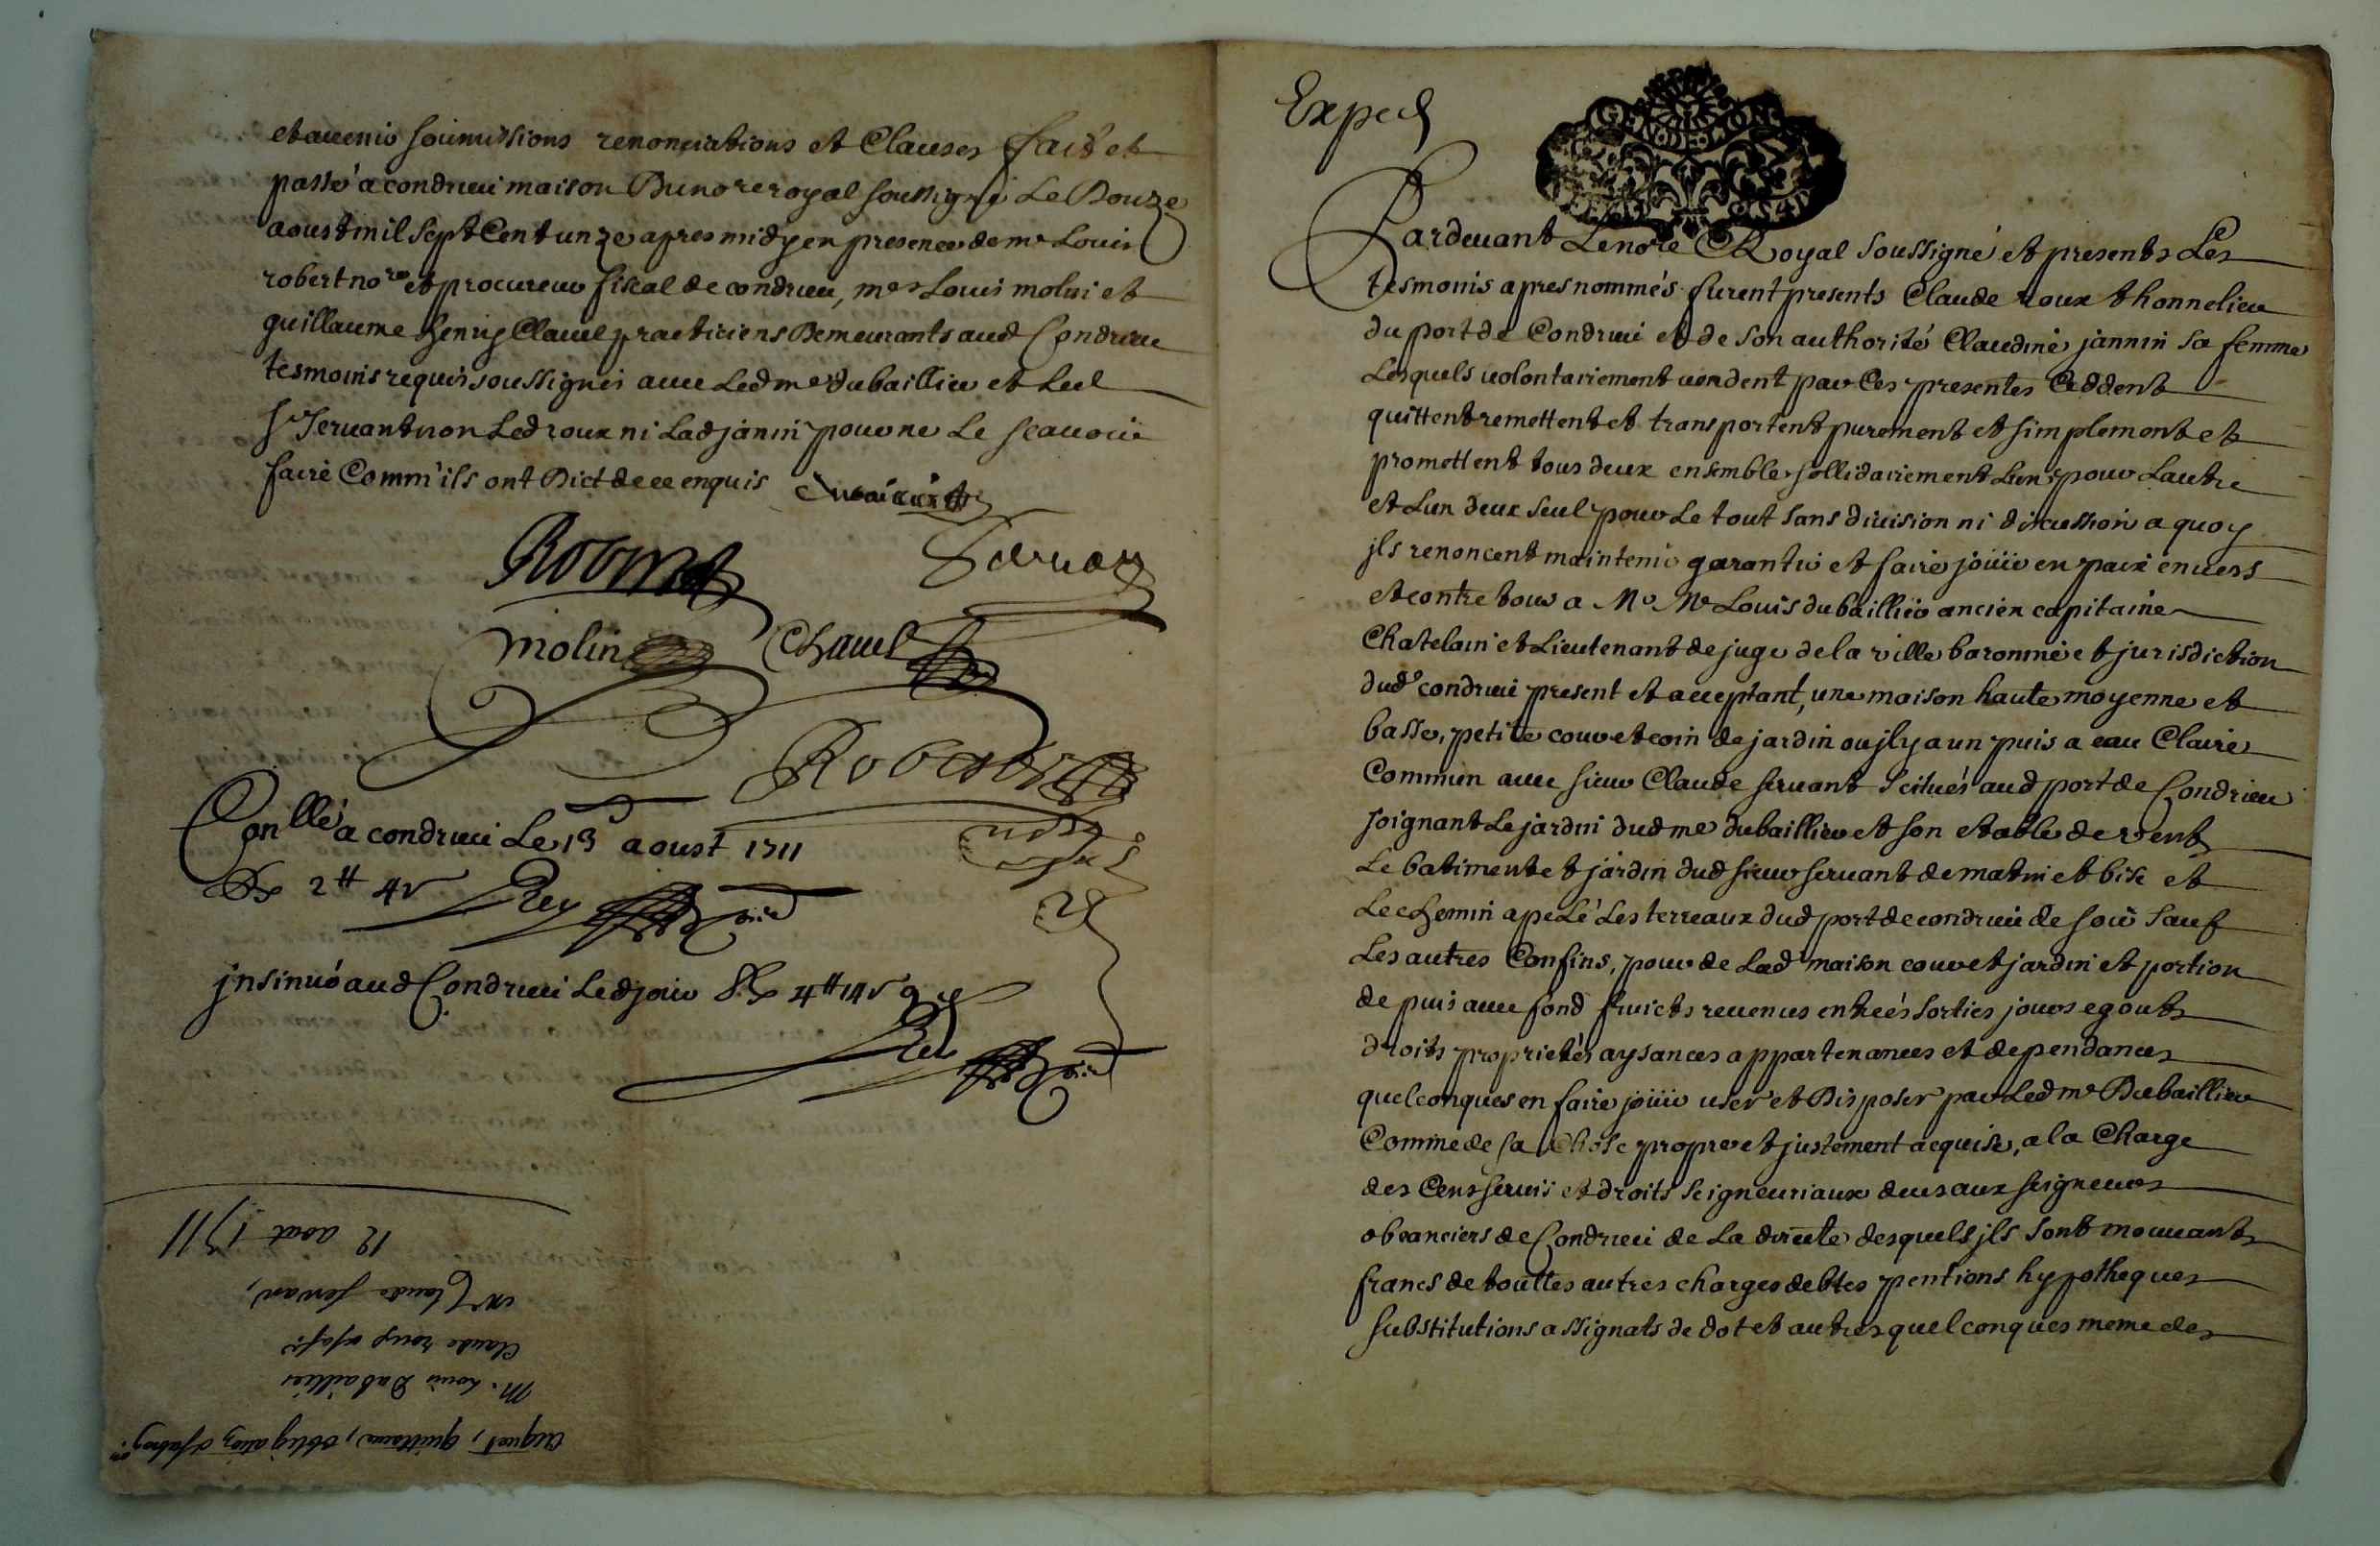 et auenir soumissions renonciations et Clauses fait et
passé a condrieu maison Du nore royal soussigné Le Douze
aoust mil sept Cent unze apres midy en presence de me Louis
robert nore et procureur fiscal de condrieu, mes Louis molin et
guillaume henry Clauel practiciens Demeurants aud Condrieu
tesmoins requis soussignés auec Led me dubaillier et Led
Sr Seruant non Led roux ni Lad jannin pour ne Le scauoir
faire Comm'ils ont Dict de ce enquis
Seruant
molin Chauel
Robert
Conllé a condrieu Le 13 aoust 1711
Rx 2tt 4s Rey
jnsinué aud Condrieu Led jour Rx 4tt 14s
Rey
12 aoat 1711
Mr Claude Servan,
Claude roux
M. Louis Dubaillier
acquet, quittance, obligation
Exped
GEN DE LION
Pardeuant Le nore Royal soussigné et presents Les
tesmoins apres nommés furent presents Claude roux thonnelier
du port de Condrieu et de son authorité Claudine jannin sa femme
Lesquels uolontairement uendent par Ces presentes Ceddent
quittent remettent et transportent purement et simplement et
promettent tous deux ensemble sollidairement Lun pour Lautre
et Lun deux seul pour Le tout sans diuision ni discussion a quoy
jls renoncent maintenir garantir et faire joüir en paix enuers
et contre tous a Mr Me Louis dubaillier ancien capitaine
Chatelain et Lieutenant de juge de la ville baronnie et jurisdiction
dud condrieu present et acceptant, une maison haute moyenne et
basse, petite cour et coin de jardin ou jl y a un puis a eau Claire
Commun auec sieur Claude seruant scitués aud port de Condrieu
joignant Le jardin dud me dubaillier et son etable de vent
Le batiment et jardin dud sieur seruant de matin et bise et
Le chemin apelé Les terreaux dud port de condrieu de soir sauf
Les autres Confins, pour de Lad maison cour et jardin et portion
de puis auec fond fruicts reuenus entreés sorties jours egouts
droits proprietés aysances appartenances et dependances
quelconques en faire joüir user et Disposer par Led me Dubaillier
Comme de sa Chose propre et justement acquise, a la Charge
des Cens seruis et droits seigneuriaux deus aux seigneurs
obeanciers de Condrieu de La directe desquels jls sont mouuants
francs de touttes autres charges debtes pentions hypotheques
substitutions assignats de dot et autres quelconques meme des